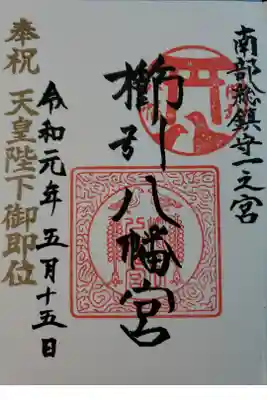 南部総鎮守一之宮
櫛引八幡宮
令和元年五月十五日
奉祝 天皇陛下御即位